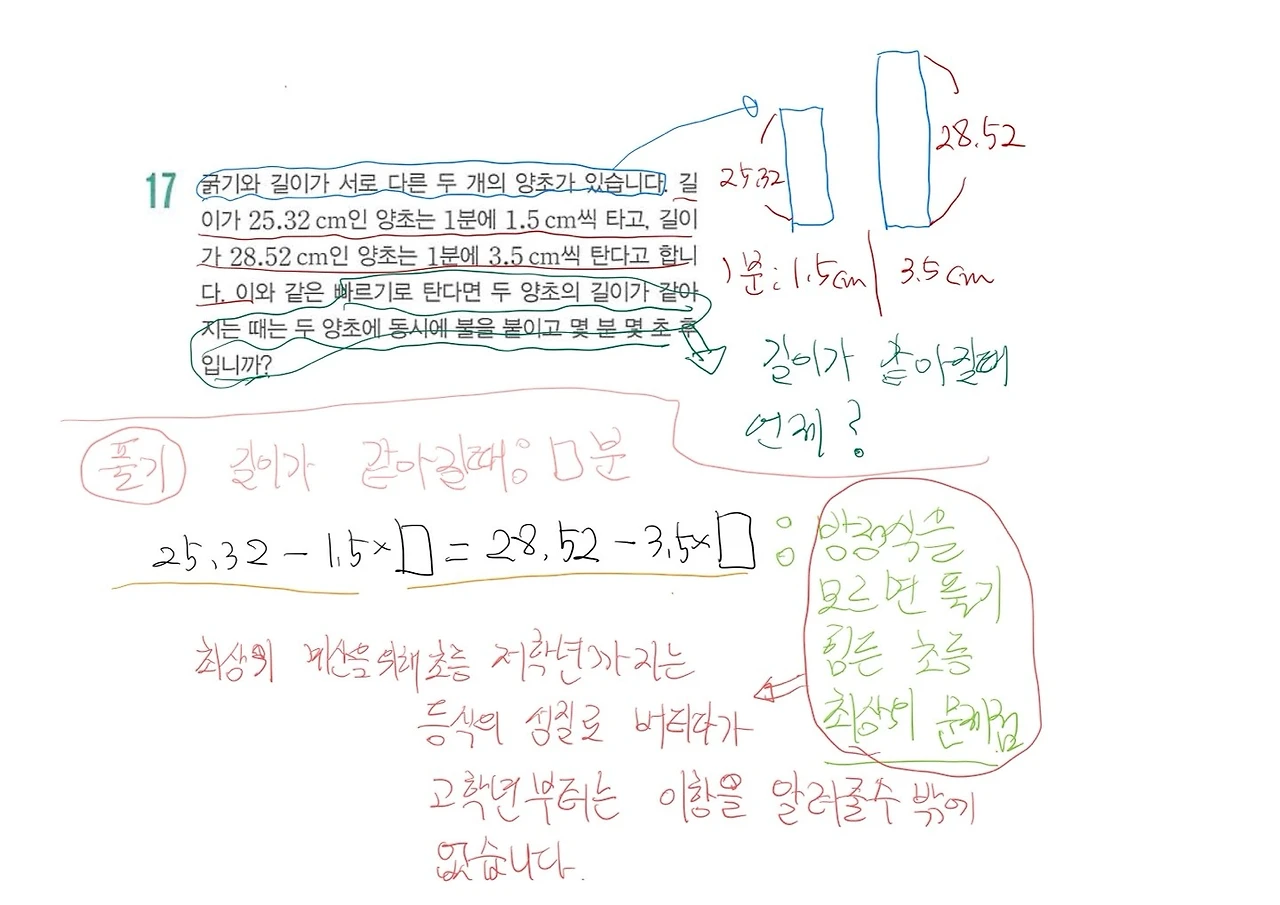 17
굵기와 길이가 서로 다른 두 개의 양초가 있습니다. 길
이가 25.32 cm인 양초는 1분에 1.5 cm씩 타고, 길이
가 28.52 cm인 양초는 1분에 3.5 cm씩 탄다고 합니
다. 이와 같은 빠르기로 탄다면 두 양초의 길이가 같아
지는 때는 두 양초에 동시에 불을 붙이고 몇 분 몇 초 후
입니까?
25.32
28.52
1분: 1.5cm
3.5cm
길이가 같아질때
언제?
풀기 길이가 같아질때: □분
25.32 - 1.5×□ = 28.52 - 3.5×□ :
방정식을
모르면 풀기
힘든 초등
최상위 문제점
최상위 계산을 위해 초등 저학년까지는
등식의 성질로 버티다가
고학년부터는 이항을 알려줄수 밖에
없습니다.